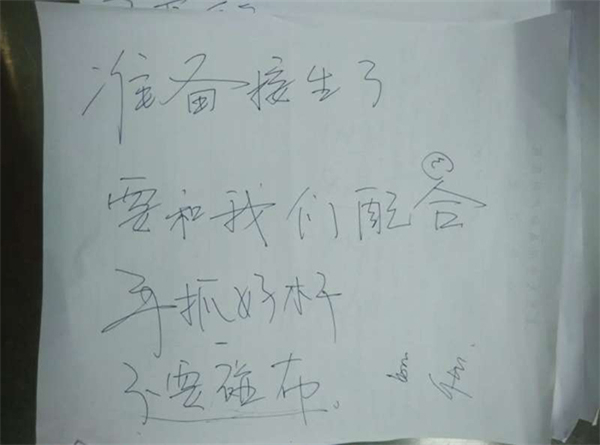 准备接生了
要和我们配合
③
手抓好杆
不要碰布。